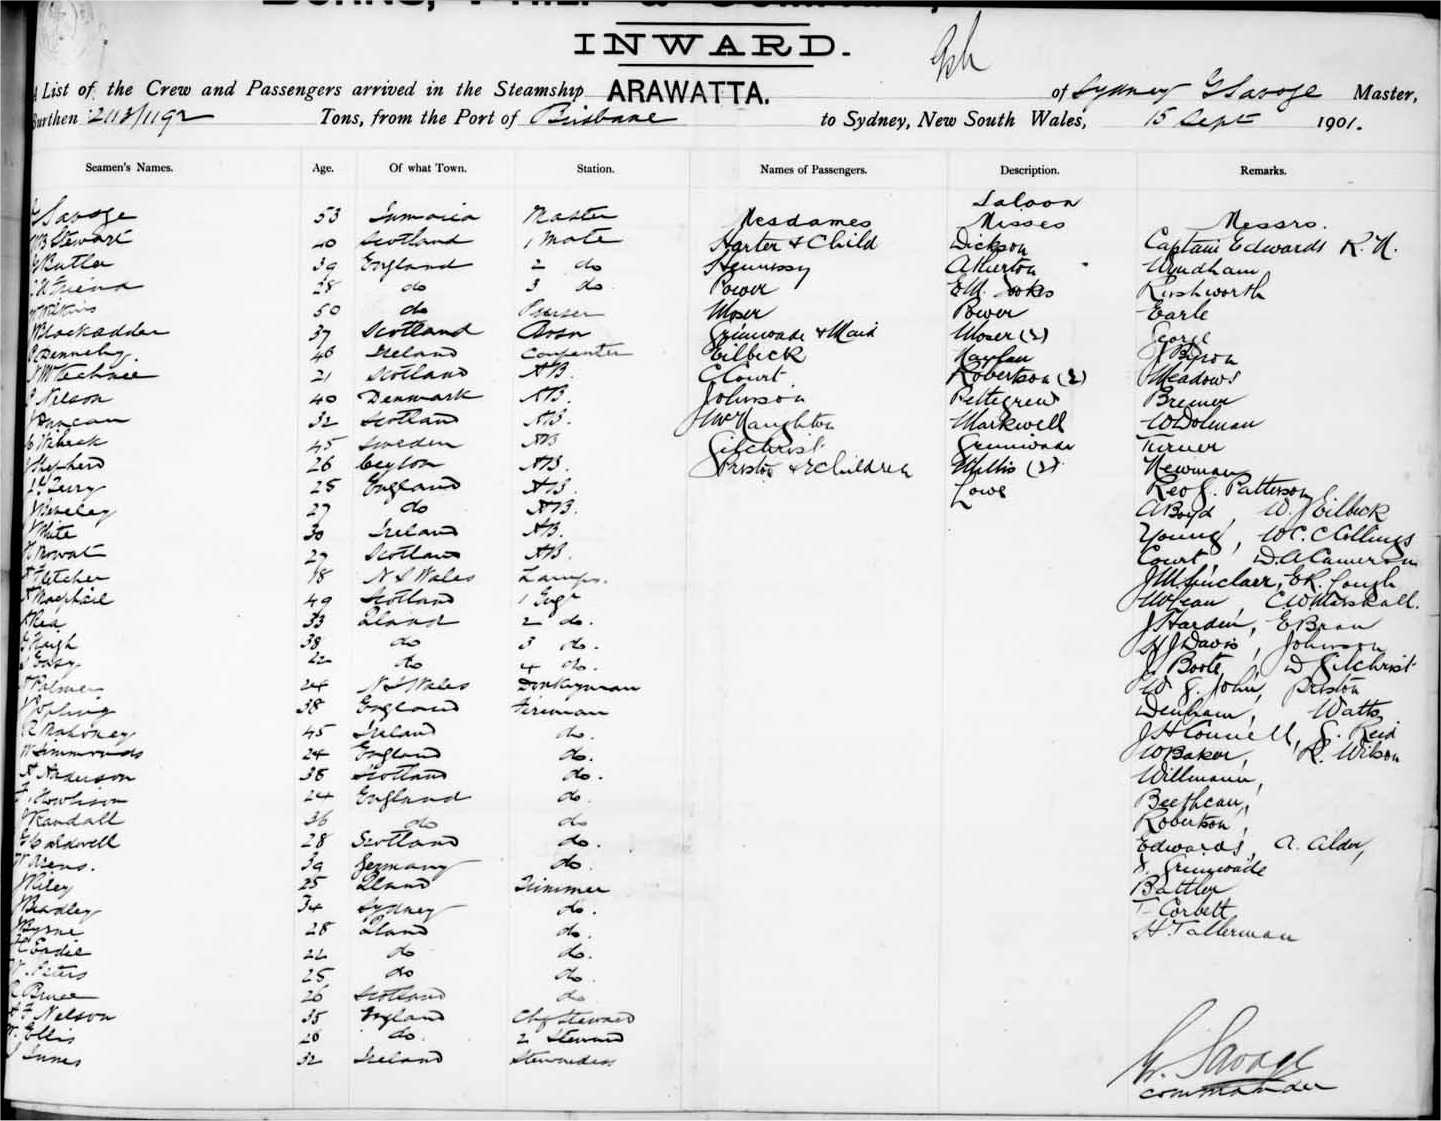 INWARD.
A List of the Crew and Passengers arrived in the Steamship ARAWATTA. of Sydney G Savage Master,
Burthen 2113/1192 Tons, from the Port of Brisbane to Sydney, New South Wales, 15 Sept 1901.
Seamen's Names. Age. Of what Town. Station. Names of Passengers. Description. Remarks.
Saloon
G Savage 53 Jamaica Master Mesdames Misses Messrs.
Stewart 40 Scotland 1 Mate Harter & Child Dickson Captain Edwards R. N.
Butler 39 England 2 do Hennessy Atherton Wyndham
Friend 28 do 3 do Power E.M. Rushworth
Wilkins 50 do Purser Moser Power Earle
Blackadder 37 Scotland Bosn Grimwade & Maid Moser (2) George
Dennehy. 46 Ireland Carpenter Eilbeck J Byron
21 Scotland AB. C Court. Robertson (2) Meadows
Nelson 40 Denmark AB. Johnson Pettigrew Bremer
Duncan 32 Scotland AB. McNaughton Markwell W Dolman
45 Sweden AB Gilchrist Grimwade Turner
Shepherd 26 Ceylon AB. Priston & 2 Children Willis (2) Newman
Terry 25 England AB. Lowe Rev G. Patterson
27 do AB. A Boyd, W. J Eilbeck
White 30 Ireland AB. Young, W. C. C Collings
Mowat 27 Scotland AB. Court, D. A Cameron
Fletcher 18 N S Wales Lamps. J M Sinclair, E R. Gough
Macphail 49 Scotland 1 Engr McLean, C W Marshall.
Rea 33 Qland 2 do. J Harden, E Brau
Hugh 38 do 3 do. H J Davis, Johnson
Easy 22 do 4 do. J. Boote, D Gilchrist
Palmer 24 N S Wales Donkeyman W. G. John, Priston
38 England Fireman Denham, Watts
R Mahoney 45 Ireland do. J H Connell, G. Reid
W Simmonds 24 England do. W Baker, R. Wilson
A Anderson 38 Scotland do. Willmann,
24 England do. Beethcan,
Randall 36 do do Robertson,
Caldwell 28 Scotland do. Edwards, A. Alder,
39 Germany do. Grimwade
Riley 25 Qland Trimmer Battler
Bradley 34 Sydney do. T Corbett
Byrne 28 Qland do. H. Tallerman
Eadie 22 do do.
Peters 25 do do.
Bruce 26 Scotland do
Nelson 35 England Chf Steward
Ellis 26 do. 2 Steward
Innes 32 Ireland Stewardess
G. Savage
commander